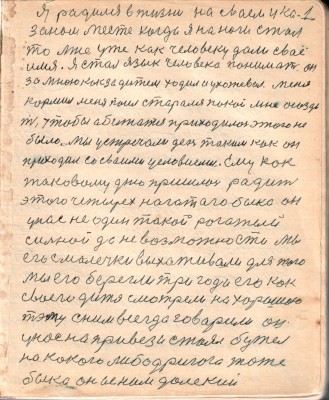 Я радился в жизни на своем ука- 1
заном месте когда я на ноги стал
то мне уже как человеку дали своё
имя. Я стал язык человека понимать он
за мною как за дитем ходил и ухожевал меня
кормил меня поил старался покой мне создо
т, чтобы абежатся приходилось этого не
было. Мы устрегали день таким как он
приходил со своими условиеми. Ему как
таковому дню пришлось радить
этого четырех нагатаго быка он
у нас не один такой рогатый
силной до невозможности мы
его смалечку выхаживали для того
мы его берегли три годы его как
своего дитя смотрели на хорошого
тэму с ним всегда говарили он
у нас на привези стоял бужел
на кокого либо другога тоже
быка он ценим далекий